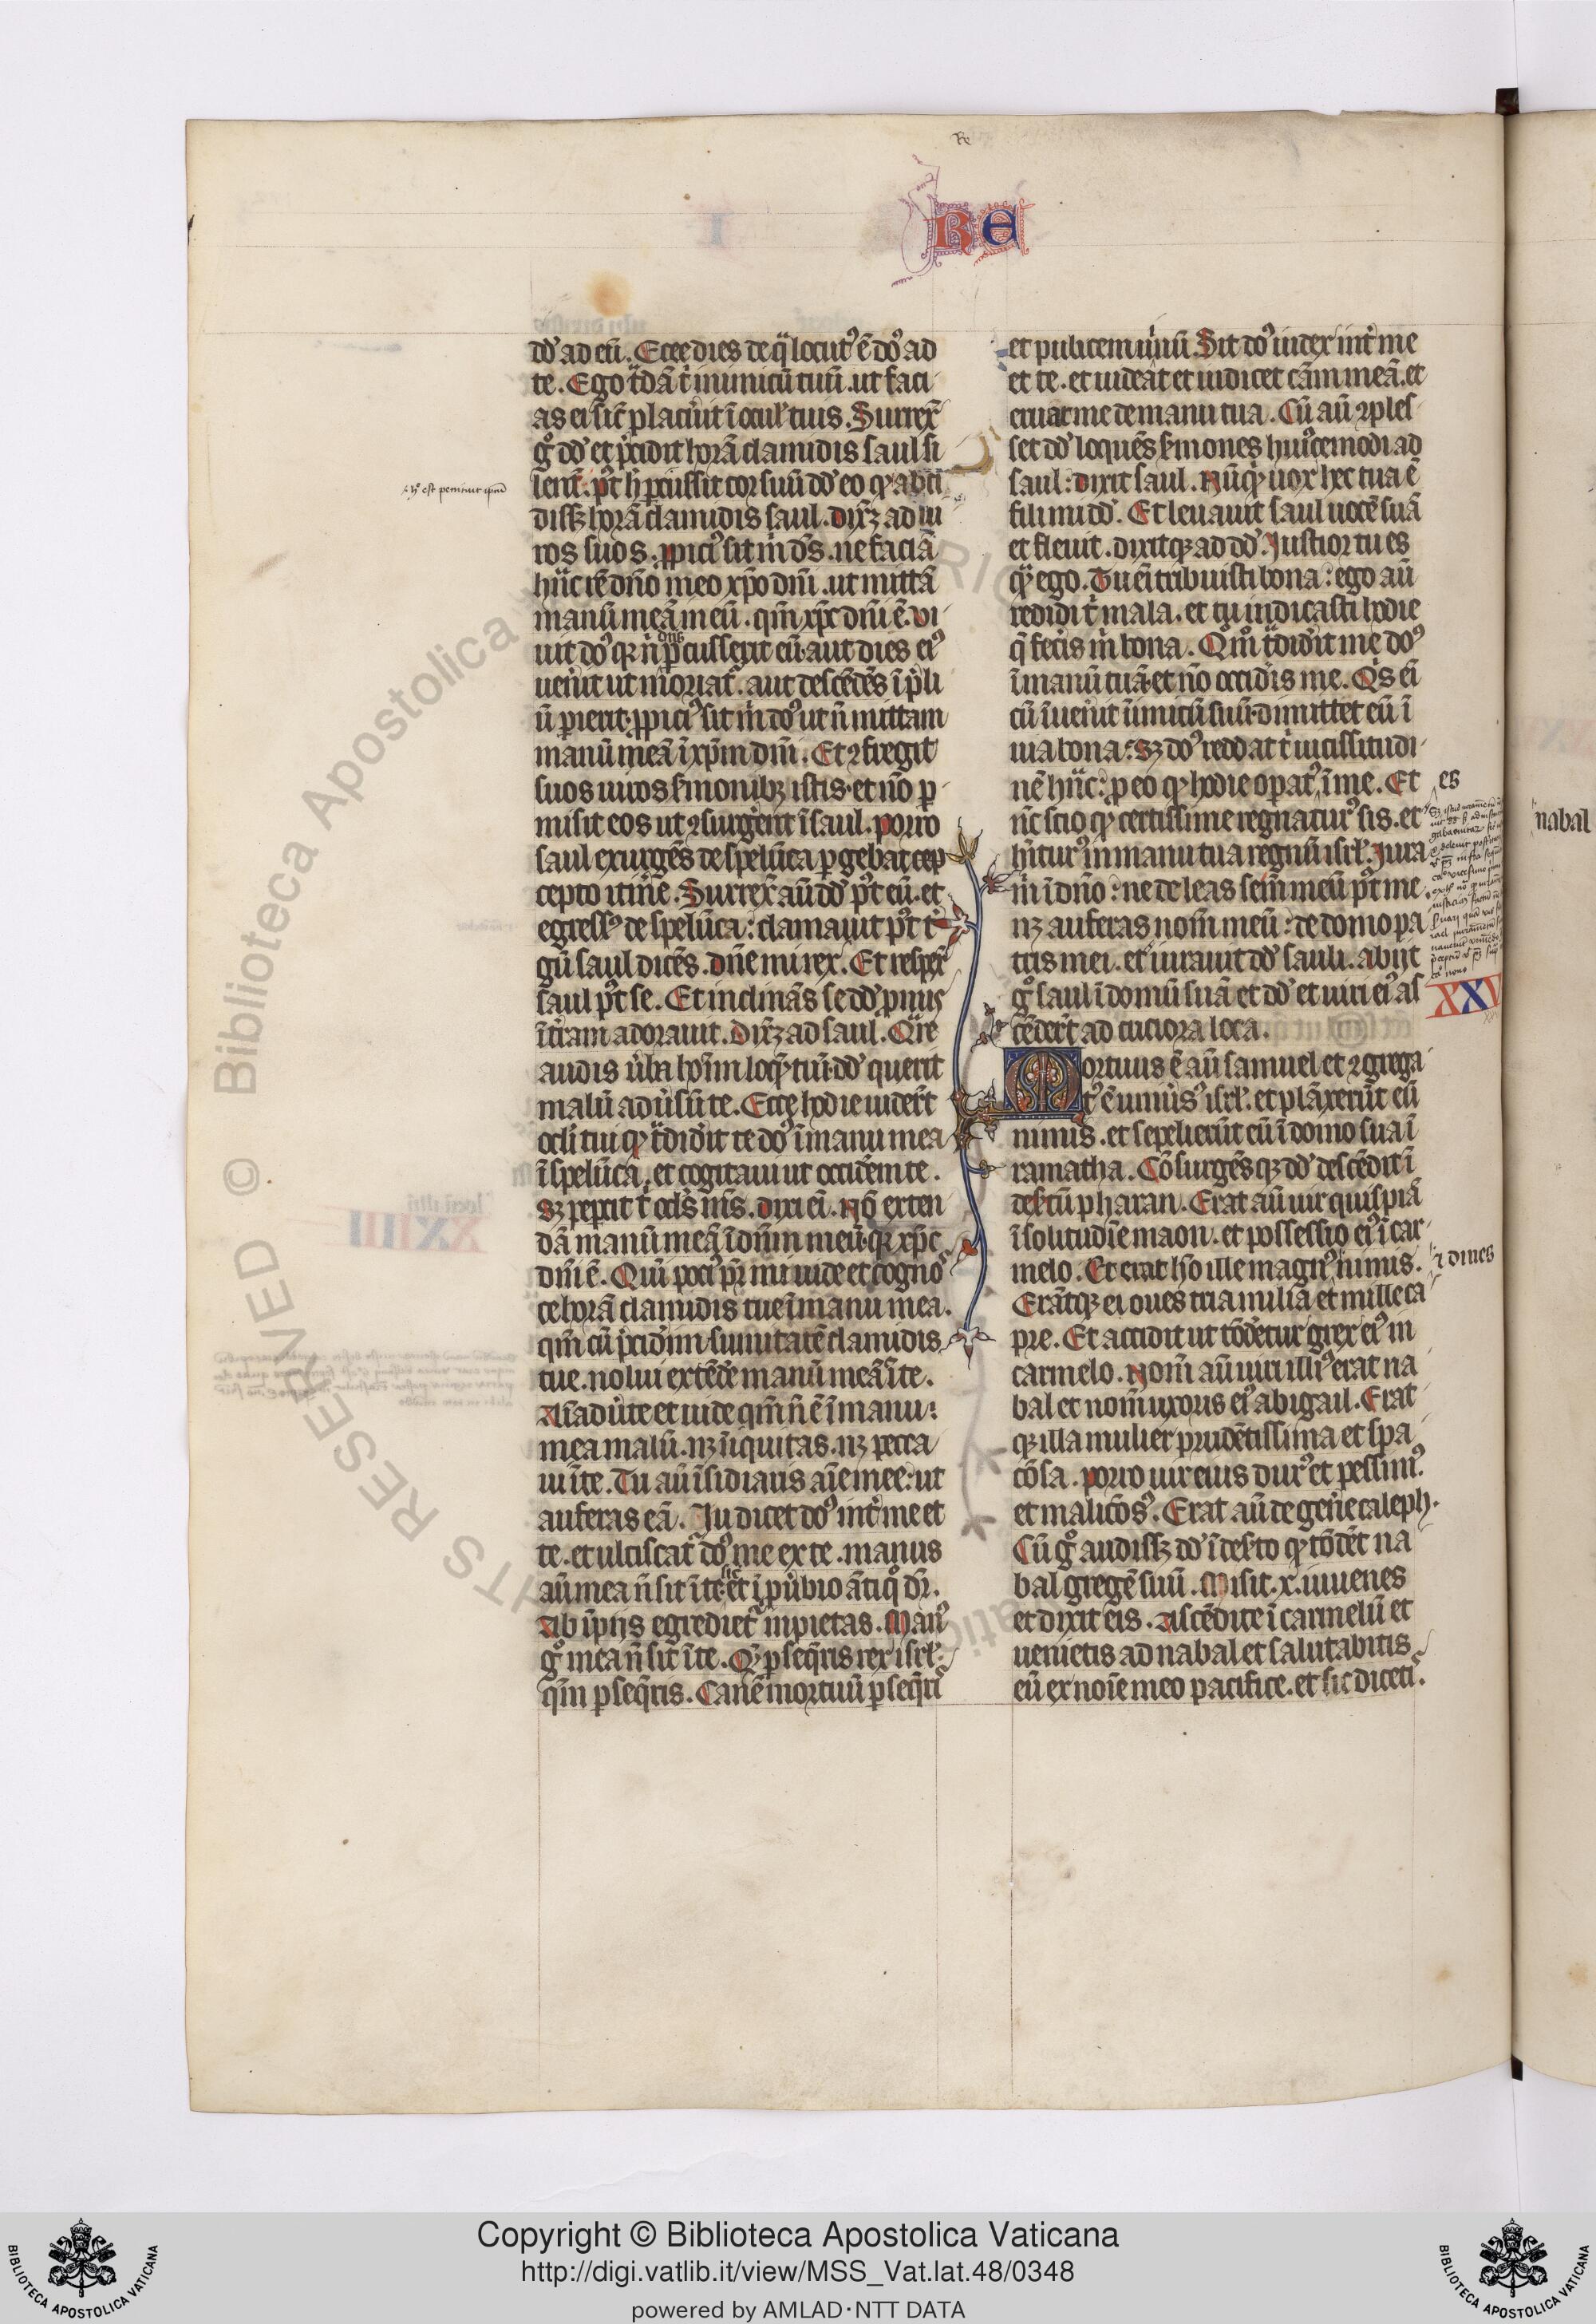 Re
RE
dd' ad eū. Ecce dies de q̄ locut' ē do' ad
te. Ego t̄dā t' inimicū tuū. ut faci
as ei sic̄ placu'it ī ocul' tuis. Surrex̄
g° dd' et p̄cidit horā clamidis saul si
lent'. p't h' p̄cussit cor suū dd' eo q' absci
x h° est penituit ipm̄
disset horā clamidis saul. dix̄q; ad ui
ros suos. ppici' sit m' ds̄. ne faciā
hāc rē dn̄o meo xp̄o dn̄i. ut mittā
manū meā in eū. qm̄ xpc̄ dn̄i ē. vi
dn̄s
uit do' q; n' p̄cusserit eū. aut dies ei'
uen'it ut moriat'. aut descēdēs ī p̄li
ū p̄ierit. ppici' sit m' do' ut n̄ mittam
manū meā ī xp̄m dn̄i. Et ꝯfregit
suos uiros s'monib; istis. et nō p
misit eos ut ꝯsurg'ent ī saul. porro
saul exurgēs de spelūca p̄gebat cep
cepto itin'e. Surrex̄ aū dd' p't eū. et
egress' de spelūca: clamauit p't t'
gū saul dicēs. dn̄e mi rex. Et respex̄
saul p't se. Et inclinās se dd' p̄nus
ī t'ram adorauit. Dix̄q; ad saul. Q̄re
audis u'ba hoīm loq̄ntiū. dd' querit
malū adu'sū te. Ecce hodie uider̄t
ocl'i tui q' t̄did'it te do' ī manu mea
ī spelūca. et cogitaui ut occid'em te.
Sz pep̄cit t' ocls̄ ms̄. dixi ei. Nō exten
dā manū meā ī dn̄m meū. q; xpc̄
dn̄i ē. Qui poci' p̄r mi uide et cogno
ce horā clamidis tue ī manu mea.
qm̄ cū p̄cid'im sumitatē clamidis
tue. nolui extēd'e manū meā ī te.
Aīaduīte et uide qm̄ n̄ ē ī manu
mea malū. nz īiquitas. nz pecca
ui ī te. Tu aū īsidiaris aīe mee: ut
auferas eā. Iudicet do' int' me et
te. et ulciscat' do' me ex te. manus
aū mea n̄ sit ī te. sic et ī pu'bio ātiq° dr̄.
Ab īpijs egrediet' inpietas. Man'
g° mea n̄ sit ī te. Q̄ p̄seq̄ris rex isrl'.
qm̄ p̄seq̄ris. Canē mortuū p̄seq̄ris
et pulicem unū. Sit do' iudex int' me
et te. et uideat et iudicet cām meā. et
eruat me de manu tua. Cū aū ꝯples
set dd' loquēs s'mones huiu'cemodi ad
saul: dixit saul. Nūq̄ uox hec tua ē
fili mi dd'. Et leuauit saul uocē suā
et fleuit. dixitq; ad dd'. Iustior tu es
q̄ ego. Tu eī tribuisti bona: ego aū
reddidi t' mala. et tu indicasti hodie
q̄ fec'is m' bona. Q°m° t̄did'it me do'
ī manū tuā. et nō occid'is me. Qs eī
cū īuen'it īimicū suū. dimittet eū ī
uia bona: Sz do' reddat t' uicissitudi
nē hāc: p eo q' hodie opat' ī me. Et
es
nc̄ scio q' certissime regnatur' sis. et
h'itur' in manu tua regnū isrl'. Iura
m' ī dn̄o: ne deleas sem̄ meū p't me.
nz auferas nom̄ meū: de domo pa
tris mei. et iurauit dd' sauli. abijt
g° saul ī domū suā et dd' et uiri ei' as
XXV
cēder̄t ad tuciora loca.
Mortuus ē aū samuel et ꝯgrega
t' ē uniu's' isrl'. et plāxerūt eū
nimis. et sepelierūt eū ī domo sua ī
ramatha. Cōsurgēsq; dd' descēdit ī
des'tū pharan. Erat aū uir quispiā
ī solitudīe maon. et possessio ei' ī car
melo. Et erat hō ille magn' nimis.
ꝯ diues
Erātq; ei oues tria milia et mille ca
pre. Et accidit ut tōderetur grex ei' in
carmelo. Nom̄ aū uiri illi' erat na
bal et nom̄ uxoris ei' abigail. Erat
q; illa mulier prudētissima et spa
cōsa. porro uir eius dur' et pessim'.
et malicōs'. Erat aū de gen'e caleph.
Cū g° audisset dd' ī des'to q' tōder̄t na
bal gregē suū. Misit .x. iuuenes
et dixit eis. Ascēdite ī carmelū et
uenietis ad nabal et salutabitis
eū ex noīe meo pacifice. et sic diceti'.
nabal
© Biblioteca Apostolica Vaticana
RIGHTS RESERVED
Copyright © Biblioteca Apostolica Vaticana
http://digi.vatlib.it/view/MSS_Vat.lat.48/0348
powered by AMLAD·NTT DATA
BIBLIOTECA APOSTOLICA VATICANA
BIBLIOTECA APOSTOLICA VATICANA